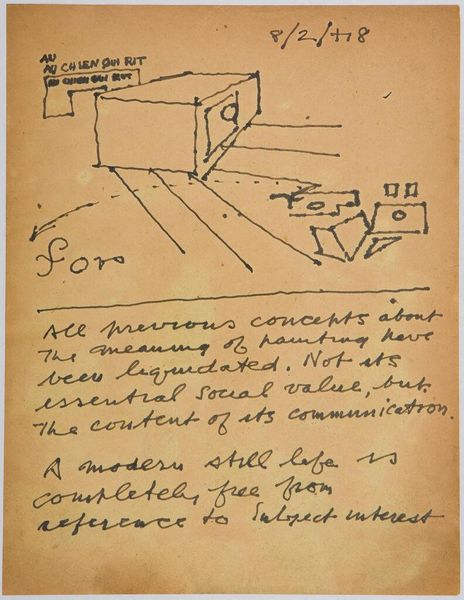 8/2/48
AU
AU CHIEN QUI RIT
AU CHIEN QUI
For
All previous concepts about
The meaning of painting have
been liquidated. Not its
essential Social value, but
The content of its communication.
A modern still life is
completely free from
reference to Subject interest